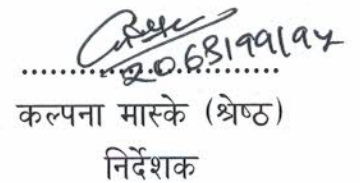 २०६८।११।१५
कल्पना मास्के (श्रेष्ठ)
निर्देशक